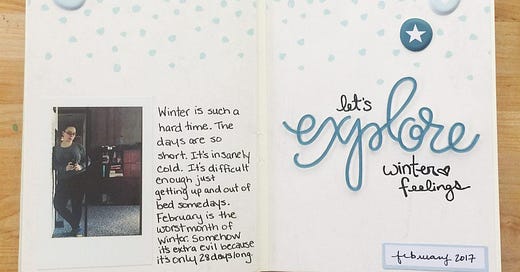 Winter is such a
hard time. The
days are so
short. It's insanely
cold. It's difficult
enough just
getting up and out of
bed some days.
February is the
worst month of
Winter. Somehow
it's extra evil because
it's only 28 days long.
let's
explore
winter
feelings
february 2017